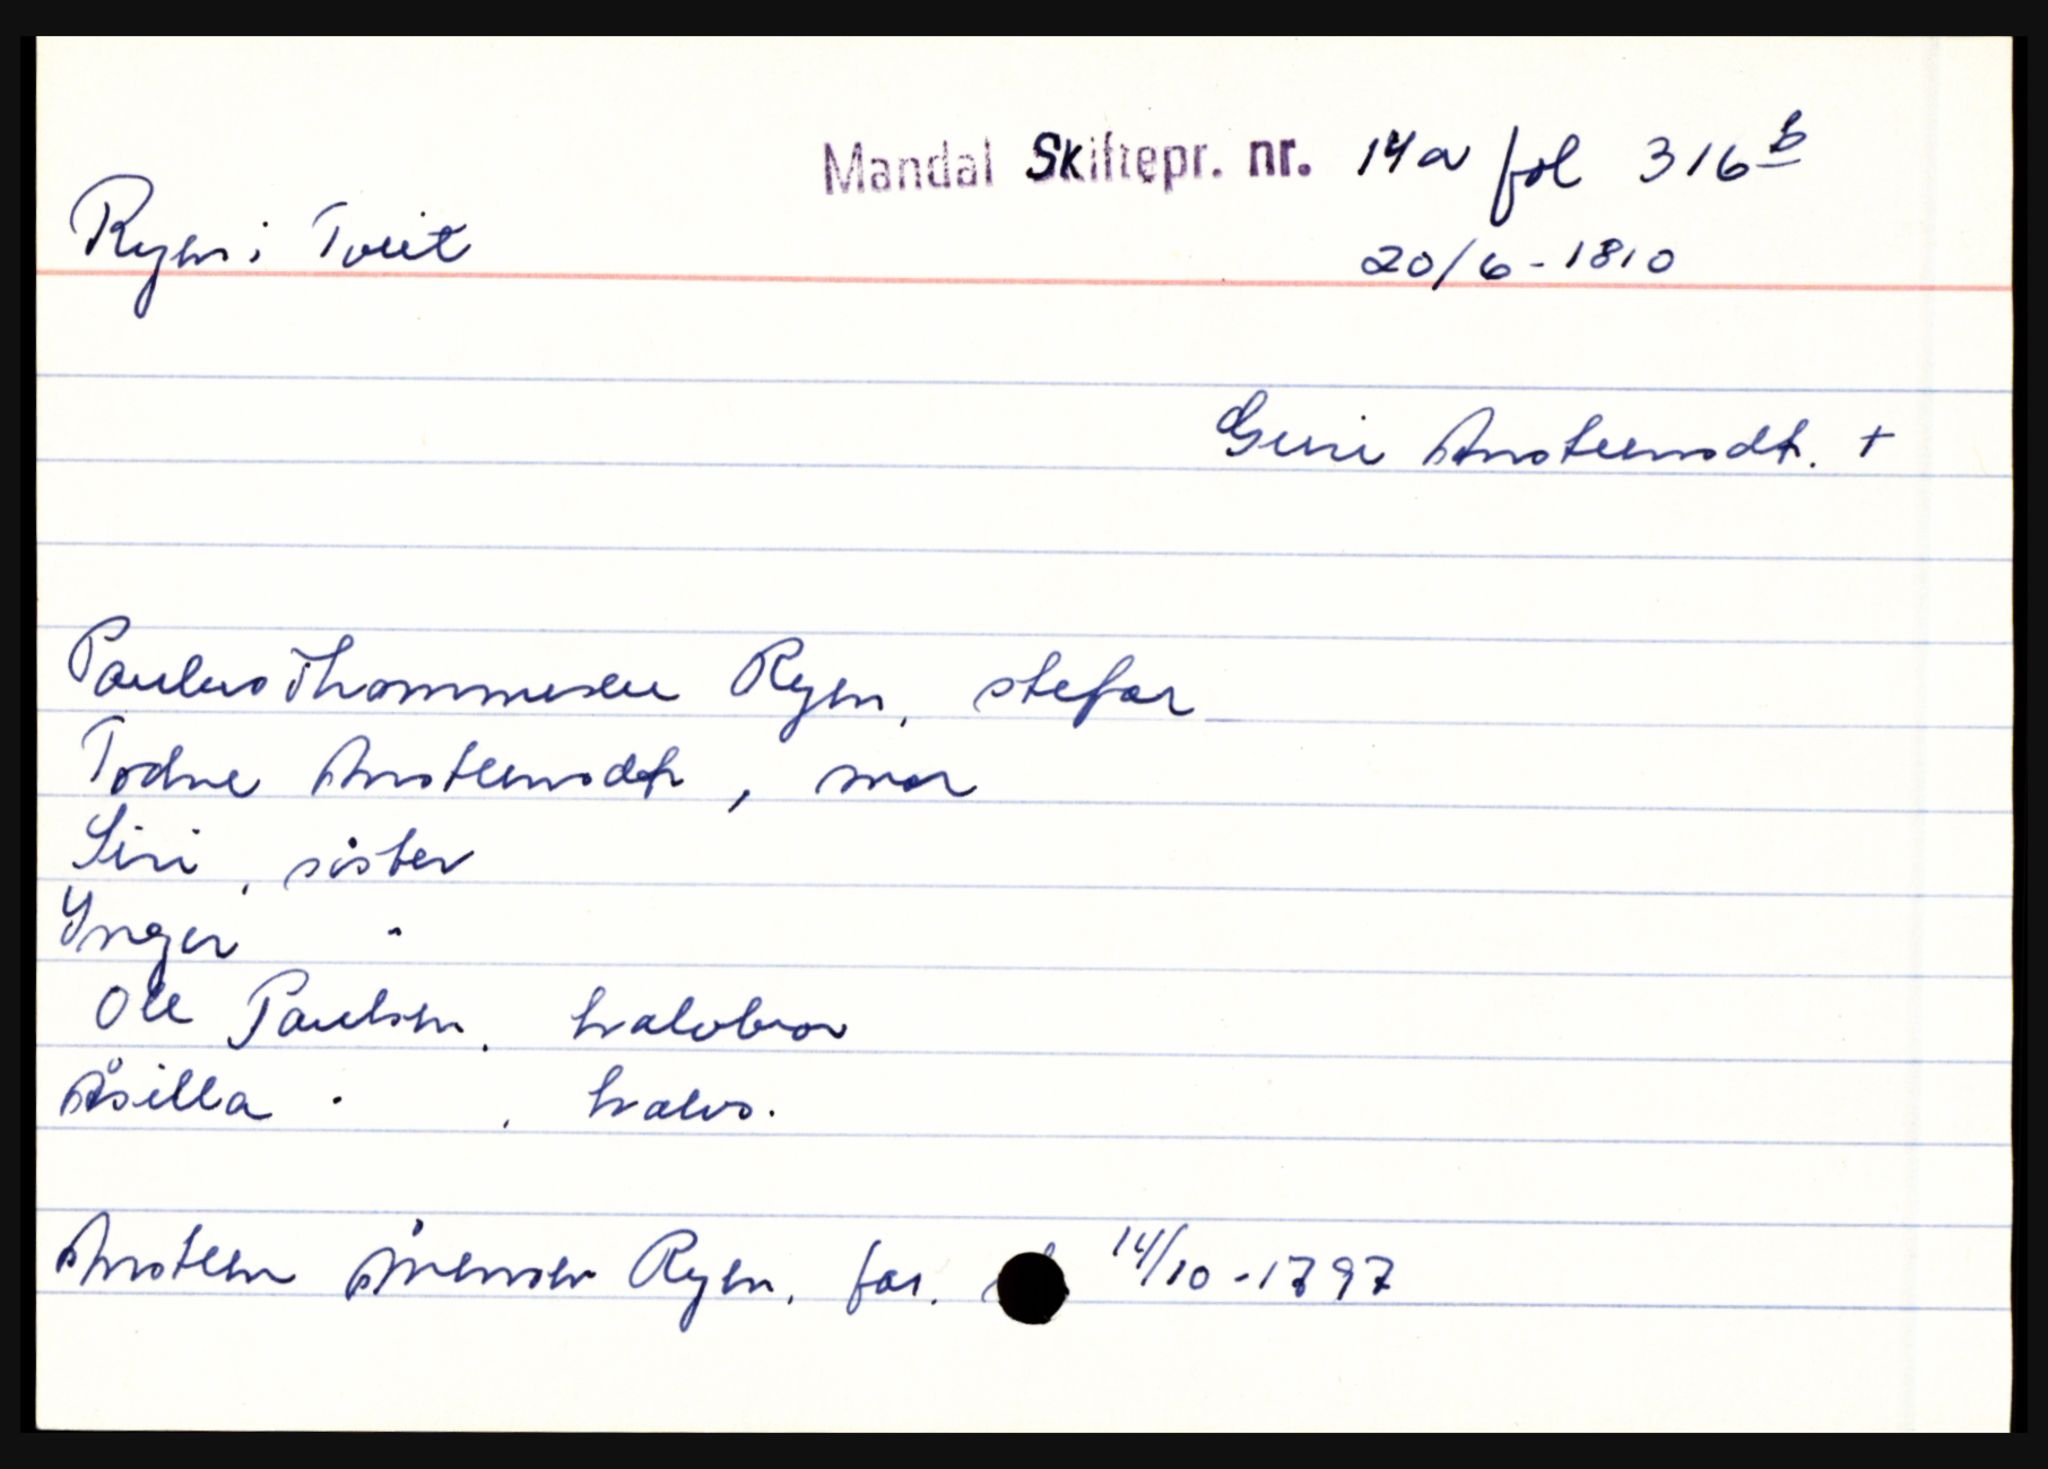 Mandal Skiftepr. nr. 14a fol 316 b
Ryen i Tveit
20/6-1810
Guri Anstensdt. +
Paulus Thommesen Ryen, stefar
Todne Anstensdt, mor
Siri, søster
Ynger "
Ole Paulsen, halvbror
Åsilla " , halvs.
Ansten Ånensen Ryen, far. 14/10-1797